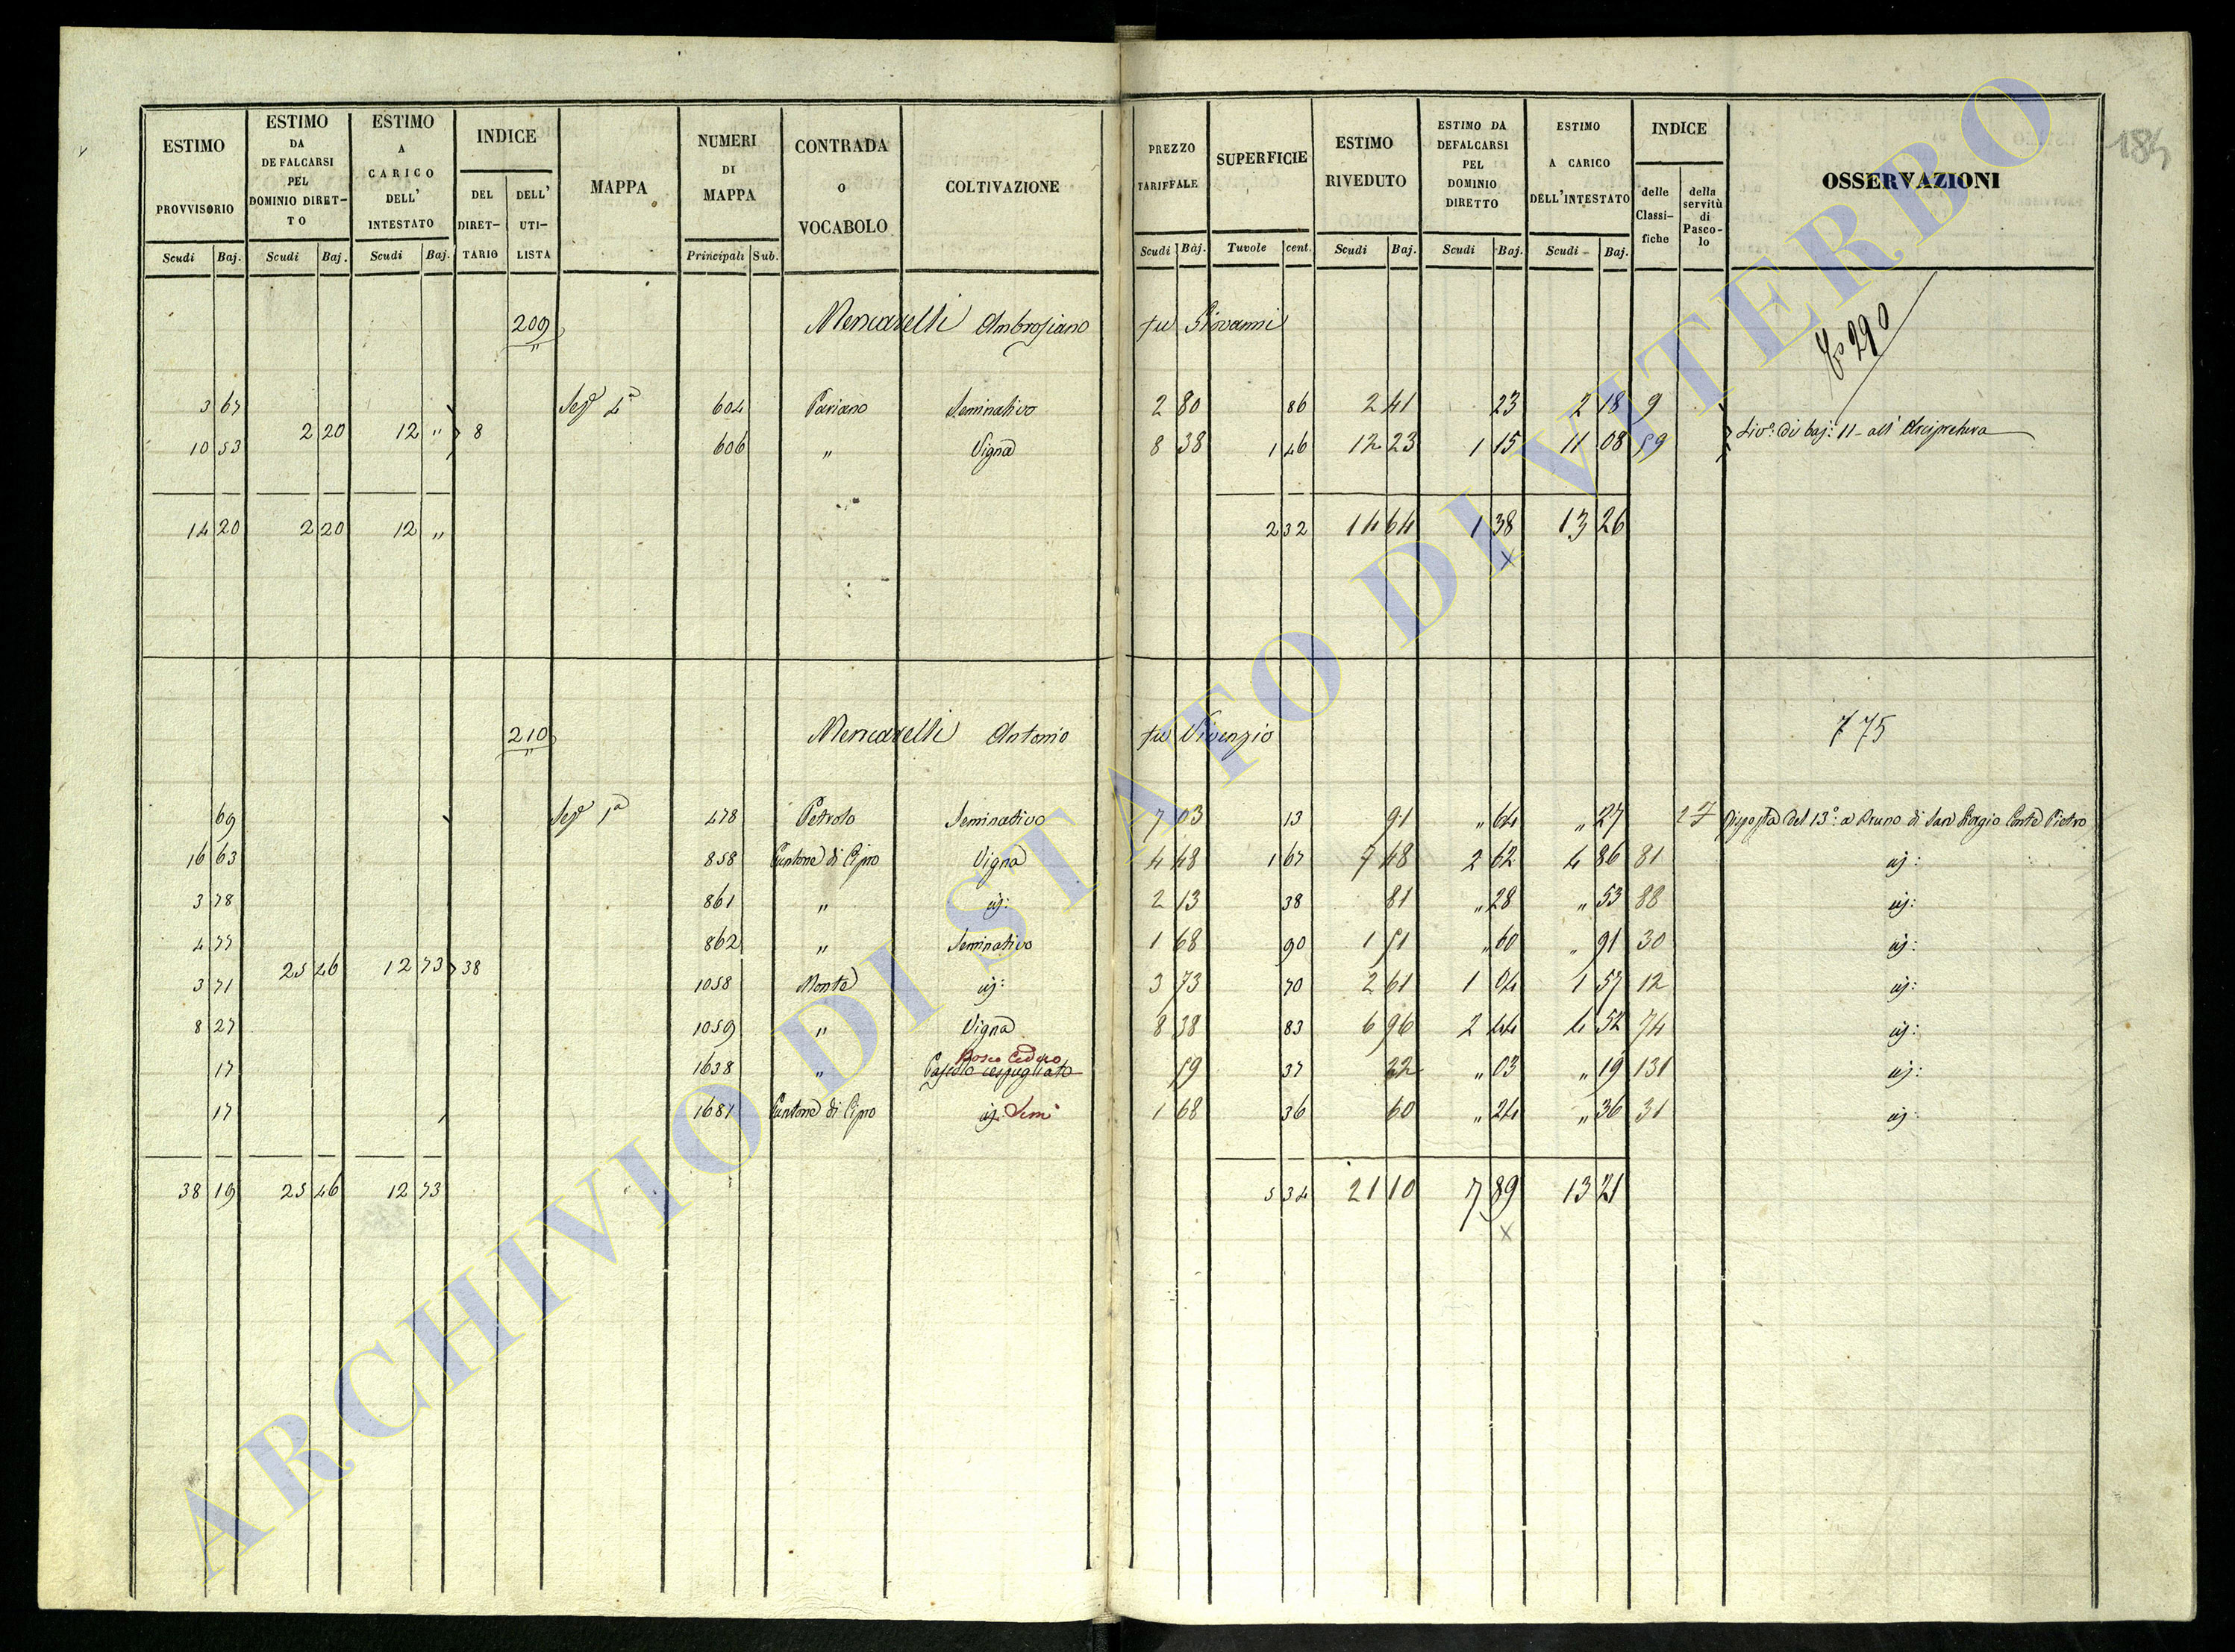 184
ESTIMO PROVVISORIO Scudi Baj.
ESTIMO DA DEFALCARSI PEL DOMINIO DIRET-TO Scudi Baj.
ESTIMO A CARICO DELL' INTESTATO Scudi Baj.
INDICE DEL DIRET-TARIO DELL' UTI-LISTA
MAPPA
NUMERI DI MAPPA Principali Sub.
CONTRADA O VOCABOLO
COLTIVAZIONE
PREZZO TARIFFALE Scudi Baj.
SUPERFICIE Tavole cent.
ESTIMO RIVEDUTO Scudi Baj.
ESTIMO DA DEFALCARSI PEL DOMINIO DIRETTO Scudi Baj.
ESTIMO A CARICO DELL'INTESTATO Scudi Baj.
INDICE delle Classi-fiche della servitù di Pasco-lo
OSSERVAZIONI
209 Mencarelli Ambrosiano fu Giovanni 290
3 67 Sez.e 4a 604 Pariano Seminativo 2 80 86 2 41 23 2 18 9
2 20 12 " 8 Liv.o di baj: 11 all' Arcipretura
10 53 606 " Vigna 8 38 1 46 12 23 1 15 11 08 59
14 20 2 20 12 " 2 32 14 64 1 38 13 26
x
210 Mencarelli Antonio fu Vivenzio 775
69 Sez.e 1a 478 Petrolo Seminativo 7 03 13 91 " 64 " 27 27 Risposta del 13o: a Bruno di San Giorgio Conte Pietro
16 63 858 Cantone di Cipro Vigna 4 48 1 67 7 48 2 62 4 86 81 id:
3 78 861 " id: 2 13 38 81 " 28 " 53 88 id:
4 77 862 " Seminativo 1 68 90 1 51 " 60 " 91 30 id:
25 46 12 73 38
3 71 1058 Monte id: 3 73 70 2 61 1 04 1 57 12 id:
8 27 1059 " Vigna 8 38 83 6 96 2 44 4 52 74 id:
Bosco Ceduo
17 1638 " Pascolo cespugliato 59 37 22 " 03 " 19 131 id:
17 1681 Cantone di Cipro id: Semi 1 68 36 60 " 24 " 36 31 id:
38 19 25 46 12 73 5 34 21 10 7 89 13 21
x
ARCHIVIO DI STATO DI VITERBO